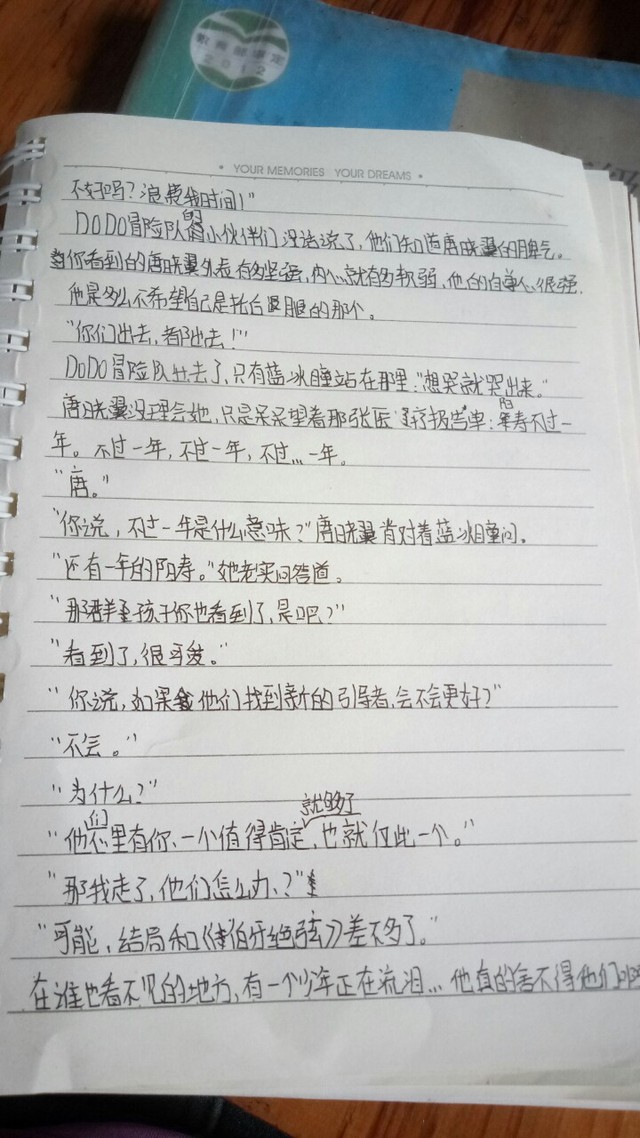 教育部审定
2012
YOUR MEMORIES YOUR DREAMS
不好吗？浪费我时间！"
DODO冒险队的小伙伴们没话说了，他们知道唐晓翼的脾气。
当你看到的唐晓翼外表有多坚强，内心就有多软弱，他的自尊心很强.
他是多么不希望自己是托台后腿的那个。
"你们出去，都出去！"
DODO冒险队出去了，只有蓝冰瞳站在那里："想哭就哭出来。"
唐晓翼没理会她，只是呆呆望着那张医疗报告单：阳寿不过一
年。不过一年，不过一年，不过…一年。
"唐。"
"你说，不过一年是什么意味？"唐晓翼背对着蓝冰瞳问。
"还有一年的阳寿。"她老实回答道。
"那群孩子你也看到了，是吧？"
"看到了，很可爱。"
"你说，如果他们找到新的引导者，会不会更好？"
"不会。"
"为什么？"
"他们心里有你、一个值得肯定就够了，也就仅此一个。"
"那我走了，他们怎么办？"
"可能，结局和《伯牙绝弦》差不多了。"
在谁也看不见的地方，有一个少年正在流泪…他真的舍不得他们